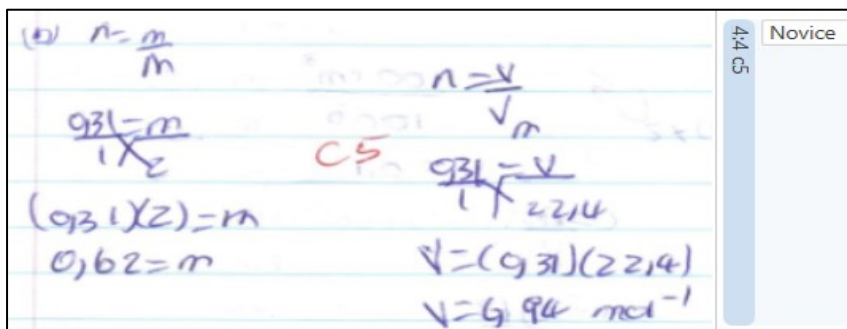 (b) n = m/M
0,31/1 = m/2
(0,31)(2) = m
0,62 = m
C5
n = V/Vm
0,31/1 = V/22,4
V = (0,31)(22,4)
V = 6,94 mol⁻¹
4:4 c5
Novice